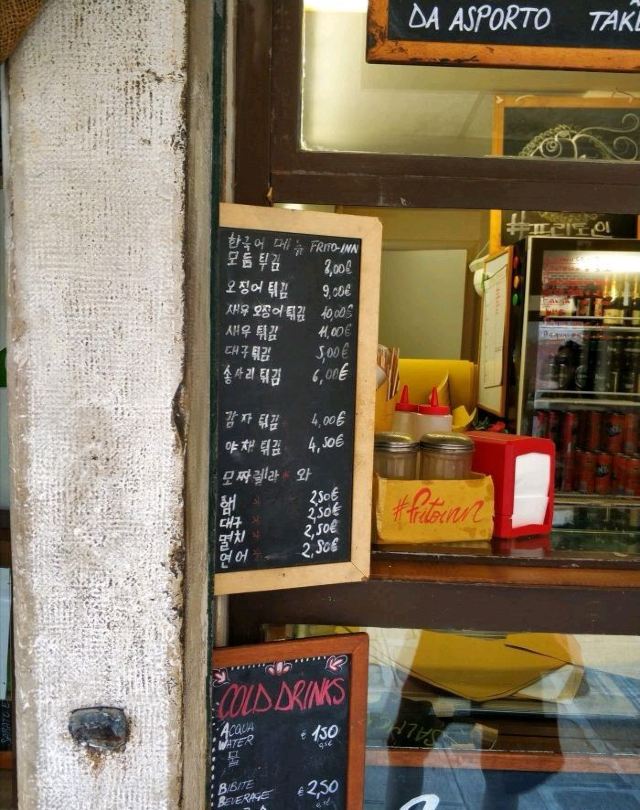 DA ASPORTO
#프리토인
한국어 메뉴 FRITO-INN
모듬 튀김 8,00€
오징어 튀김 9,00€
새우 오징어 튀김 10,00€
새우 튀김 11,00€
대구 튀김 5,00€
송사리 튀김 6,00€
감자 튀김 4,00€
야채 튀김 4,50€
모짜렐라 와
햄 2,50€
대구 2,50€
멸치 2,50€
연어 2,50€
#fritoinn
COLD DRINKS
ACQUA € 1,50
WATER
물
BIBITE € 2,50
BEVERAGE